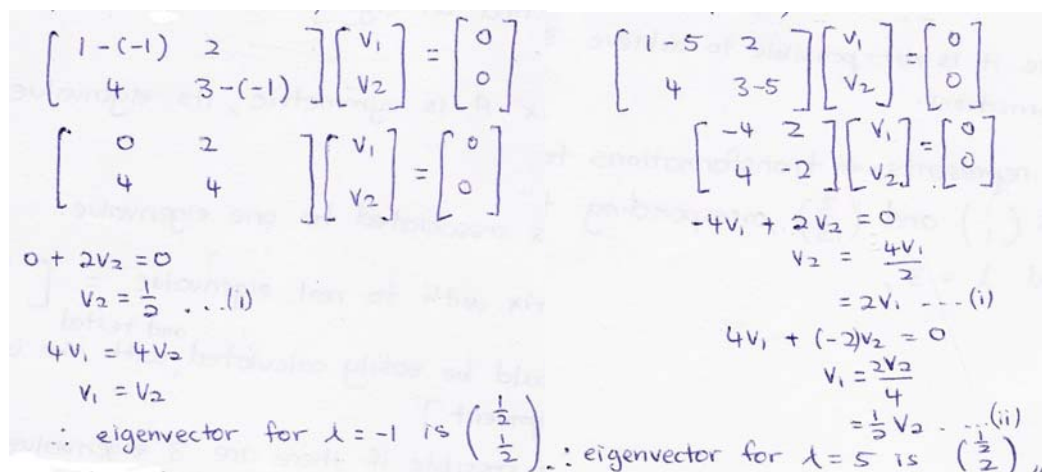 [ 1-(-1) 2 ] [ v₁ ] = [ 0 ]
[ 4 3-(-1) ] [ v₂ ] [ 0 ]
[ 0 2 ] [ v₁ ] = [ 0 ]
[ 4 4 ] [ v₂ ] [ 0 ]
0 + 2v₂ = 0
v₂ = 1/2 ...(i)
4v₁ = 4v₂
v₁ = v₂
∴ eigenvector for λ = -1 is ( 1/2 1/2 )
[ 1-5 2 ] [ v₁ ] = [ 0 ]
[ 4 3-5 ] [ v₂ ] [ 0 ]
[ -4 2 ] [ v₁ ] = [ 0 ]
[ 4 -2 ] [ v₂ ] [ 0 ]
-4v₁ + 2v₂ = 0
v₂ = 4v₁/2
= 2v₁ ...(i)
4v₁ + (-2)v₂ = 0
v₁ = 2v₂/4
= 1/2 v₂ ...(ii)
∴ eigenvector for λ = 5 is ( 1/2